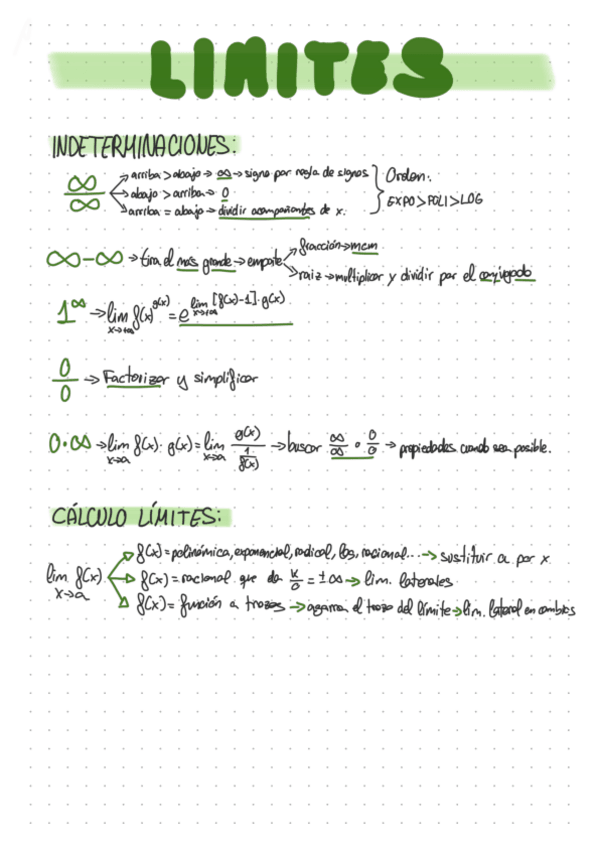 LIMITES
INDETERMINACIONES:
∞/∞ → arriba > abajo → ∞ → signo por regla de signos
→ abajo > arriba → 0
→ arriba = abajo → dividir acompañantes de x.
Orden:
EXPO > POLI > LOG
∞-∞ → tira el más grande → empate → fracción → mcm
→ raíz → multiplicar y dividir por el conjugado
1^∞ → lim x→+∞ f(x)^g(x) = e^lim x→+∞ [f(x)-1]·g(x)
0/0 → Factorizar y simplificar
0·∞ → lim x→a f(x)·g(x) = lim x→a g(x)/(1/f(x)) → buscar ∞/∞ o 0/0 → propiedades cuando sea posible.
CÁLCULO LÍMITES:
lim x→a f(x) → f(x) = polinómica, exponencial, radical, log, racional... → sustituir a por x
→ f(x) = racional que da k/0 = ±∞ → lim. laterales
→ f(x) = función a trozos → agarra el trozo del límite → lim. lateral en cambios